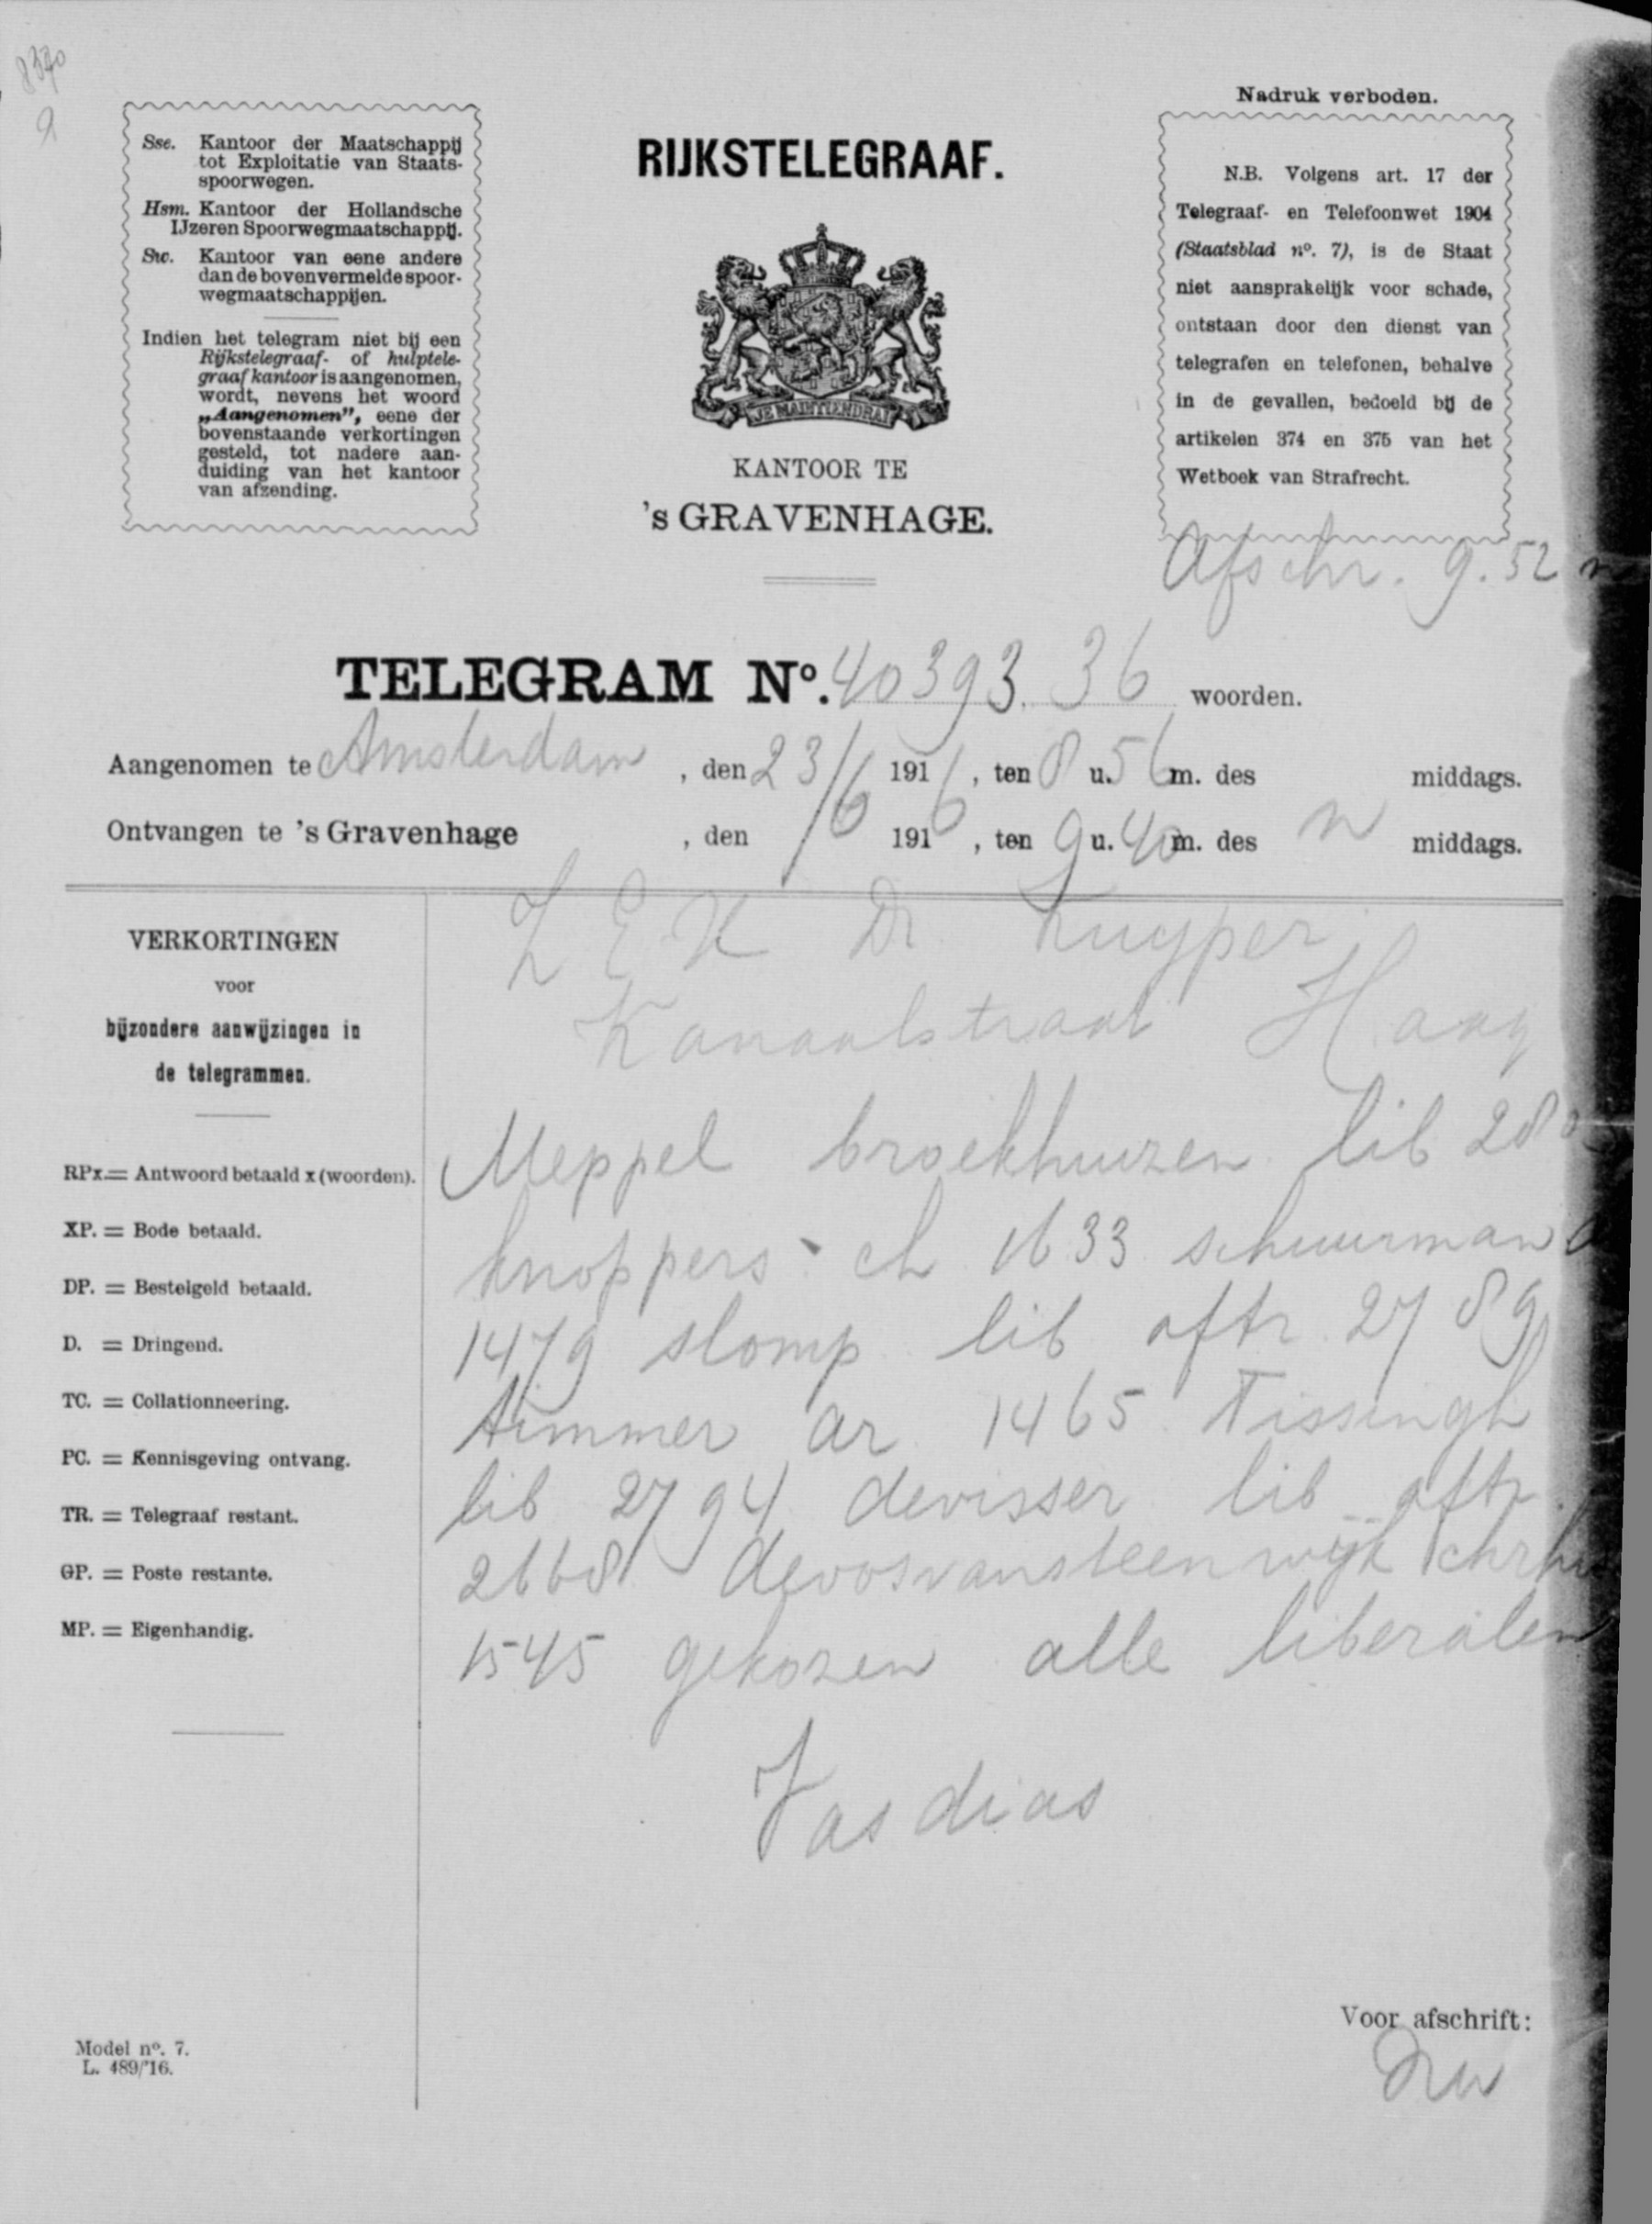 8370
9
Sse. Kantoor der Maatschappij
tot Exploitatie van Staats-
spoorwegen.
Hsm. Kantoor der Hollandsche
IJzeren Spoorwegmaatschappij.
Sw. Kantoor van eene andere
dan de bovenvermelde spoor-
wegmaatschappijen.
Indien het telegram niet bij een
Rijkstelegraaf- of hulptele-
graafkantoor is aangenomen,
wordt, nevens het woord
„Aangenomen”, eene der
bovenstaande verkortingen
gesteld, tot nadere aan-
duiding van het kantoor
van afzending.
RIJKSTELEGRAAF.
JE MAINTIENDRAI
KANTOOR TE
's GRAVENHAGE.
Nadruk verboden.
N.B. Volgens art. 17 der
Telegraaf- en Telefoonwet 1904
(Staatsblad nº. 7), is de Staat
niet aansprakelijk voor schade,
ontstaan door den dienst van
telegrafen en telefonen, behalve
in de gevallen, bedoeld bij de
artikelen 374 en 375 van het
Wetboek van Strafrecht.
Afschr. 9.52 n
TELEGRAM Nº. 40393. 36 woorden.
Aangenomen te Amsterdam, den 23/6 1916, ten 8 u. 56 m. des middags.
Ontvangen te 's Gravenhage, den /6 1916, ten 9 u. 40 m. des n middags.
Z E K Dr Kuyper
Kanaalstraat Haag
Meppel broekhuizen lib 280
knoppers ch 1633 schuurman
1479 slomp lib aftr 2789
timmer ar 1465 Tissingh
lib 2794 devisser lib aftr
2668 devosvansteenwijk chrhis
1545 gekozen alle liberalen
Vasdias
VERKORTINGEN
voor
bijzondere aanwijzingen in
de telegrammen.
RPx. = Antwoord betaald x (woorden).
XP. = Bode betaald.
DP. = Bestelgeld betaald.
D. = Dringend.
TC. = Collationneering.
PC. = Kennisgeving ontvang.
TR. = Telegraaf restant.
GP. = Poste restante.
MP. = Eigenhandig.
Model nº. 7.
L. 489/'16.
Voor afschrift: